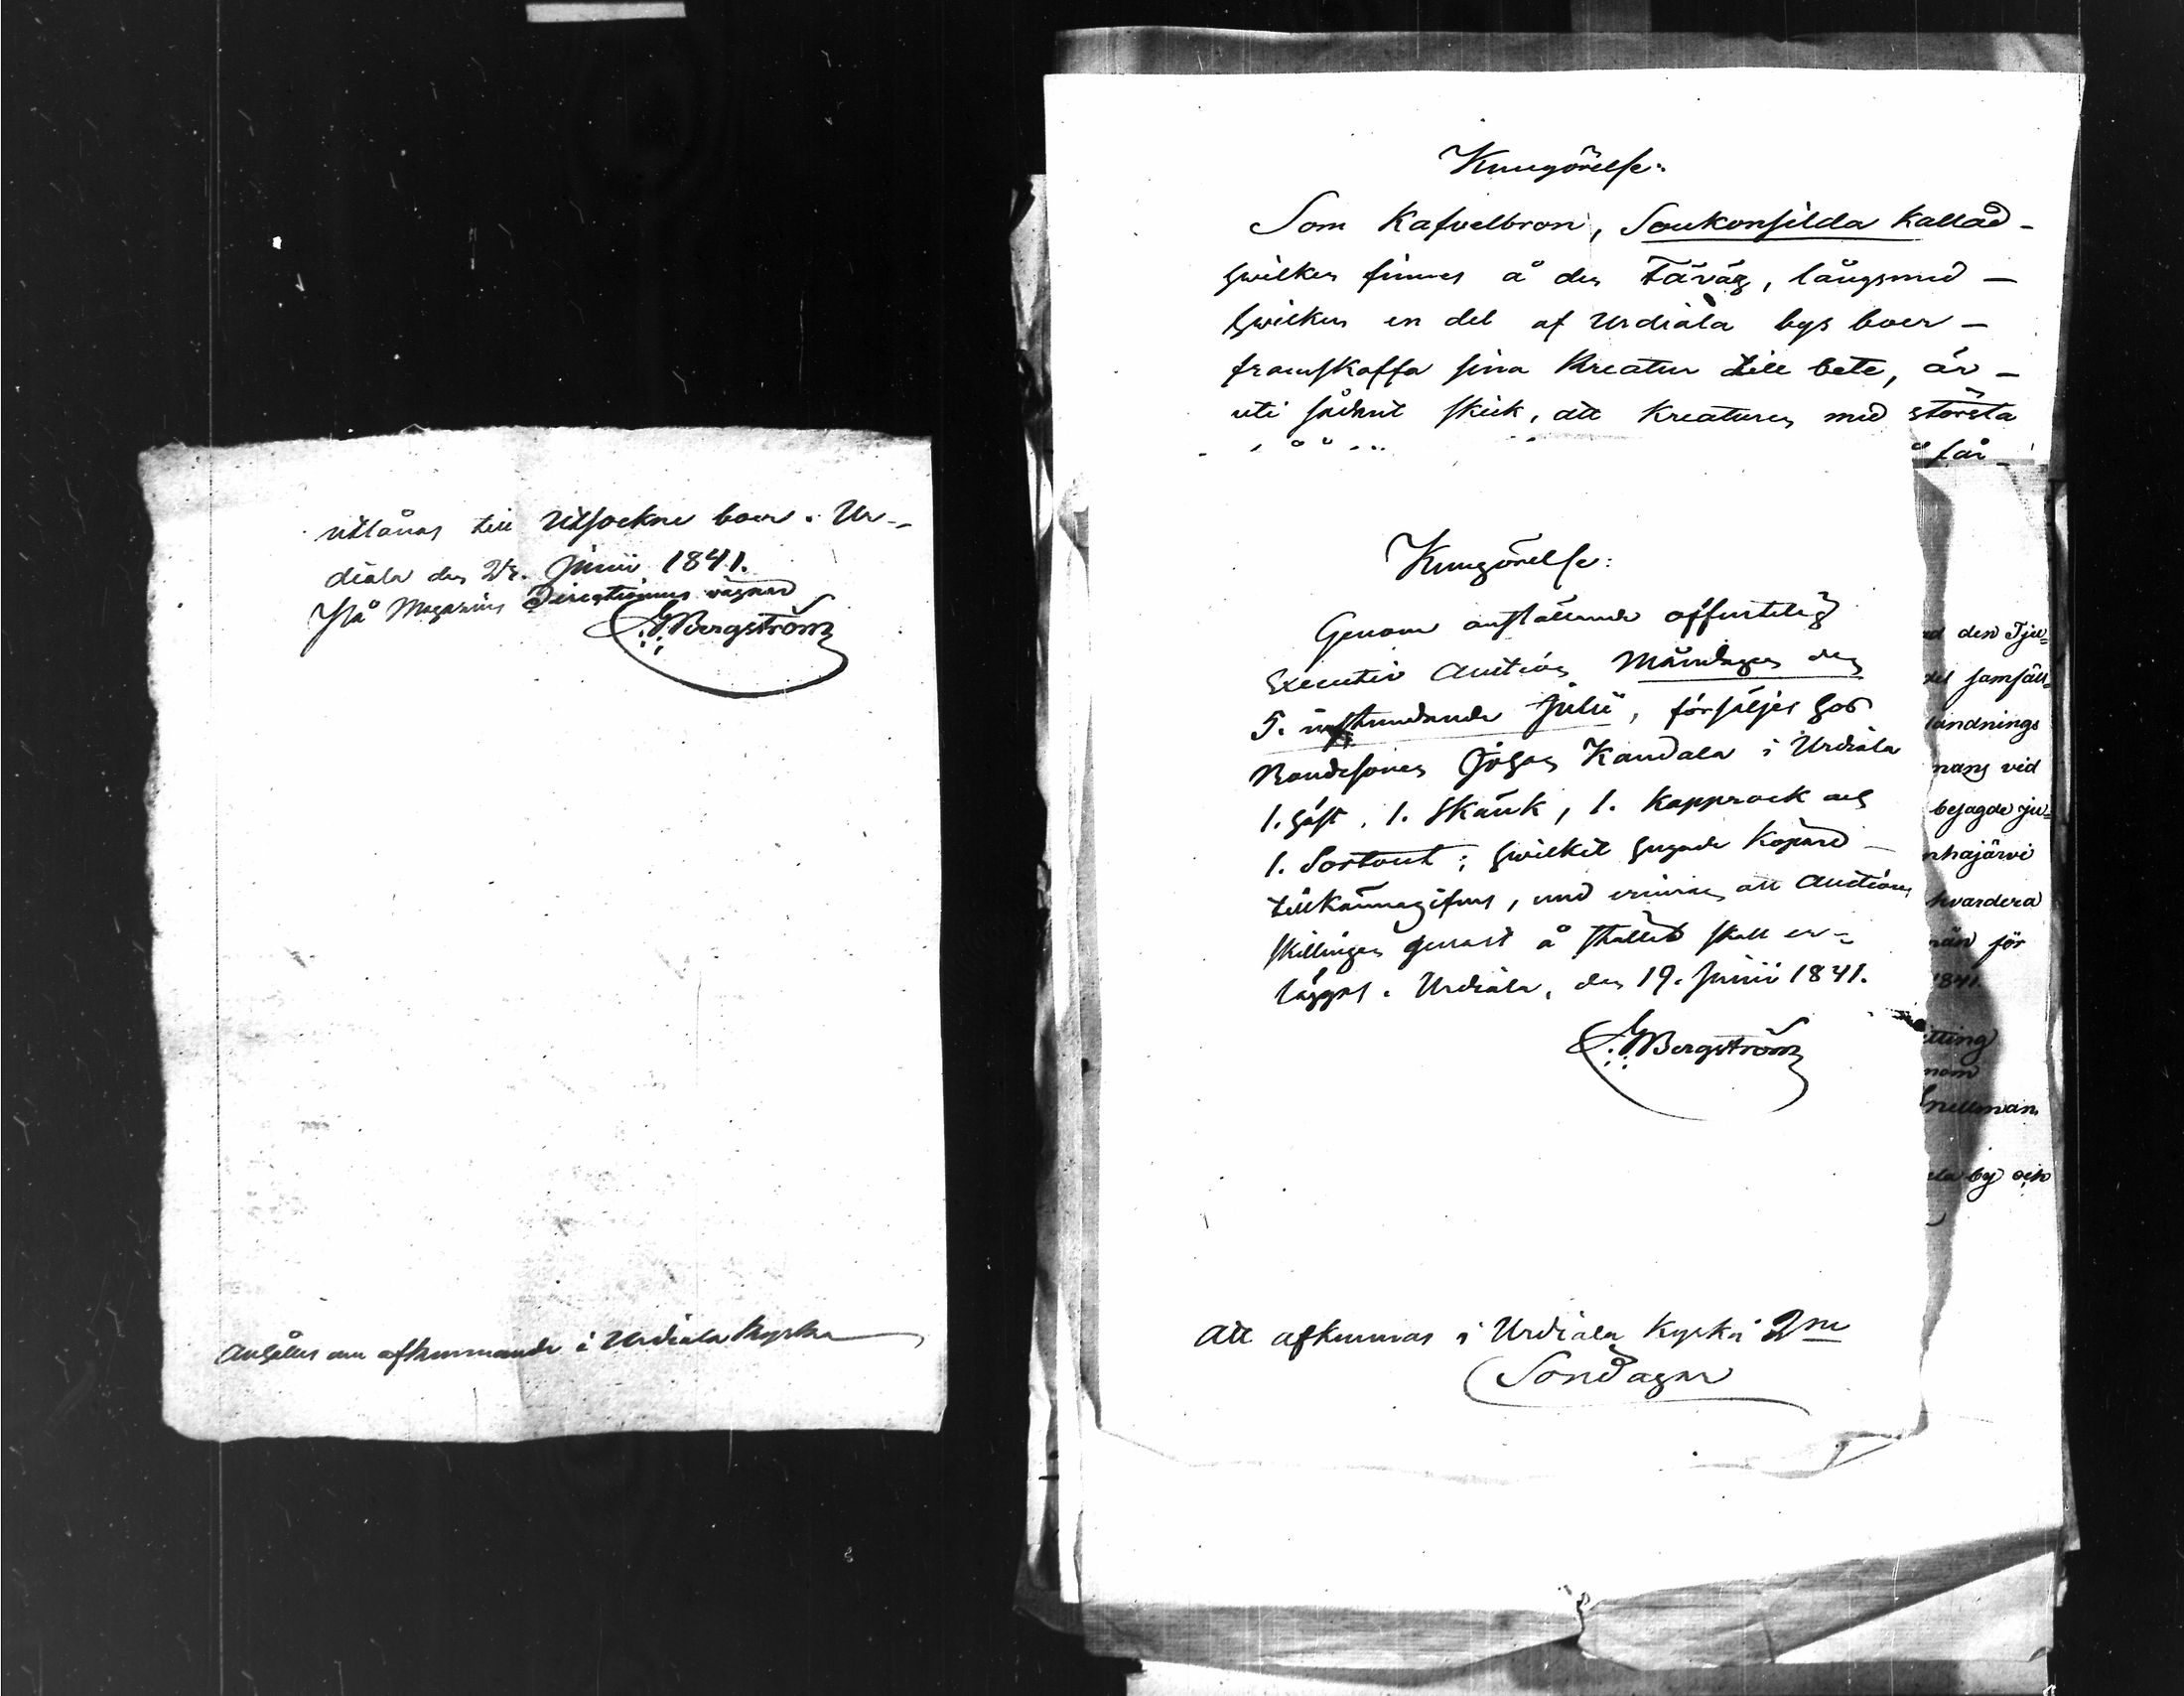 utlånas till Utsockne boer. Ur-
diala den Juni 1841.
På Magazins Directionens vägnar
G Bergström
Anhålles om afkunnande i Urdiala Kyrka
Kungörelse:
Som Kafvelbron, Soukonsilda kallad -
hwilken finnes å den Fäväg, långsmed -
hwilken en del af Urdiala bys boer -
framskaffa sina Kreatur till bete, är -
uti sådant skick, att Kreaturen med största
får
Kungörelse:
Genom anställande offentelig
Executiv Auction Måndagen den
5. instundande Julii, försäljes hos
Bondesonen Johan Kandala i Urdiala
1. häst, 1. Skänk, 1. Kapprock och
1. Sortout; hwilket hugade Köpare -
tillkännagifves, med erinran att Auctions
skillingen genast å stället skall er-
läggas. Urdiala, den 19. Junii 1841.
G Bergström
Att afkunnas i Urdiala Kyrka 2ne
Söndagar
den Tju-
samfäll-
landnings
mans vid
besagde ju-
hajärvi
hvardera
för
1841.
itting
nom
Snellman
by och